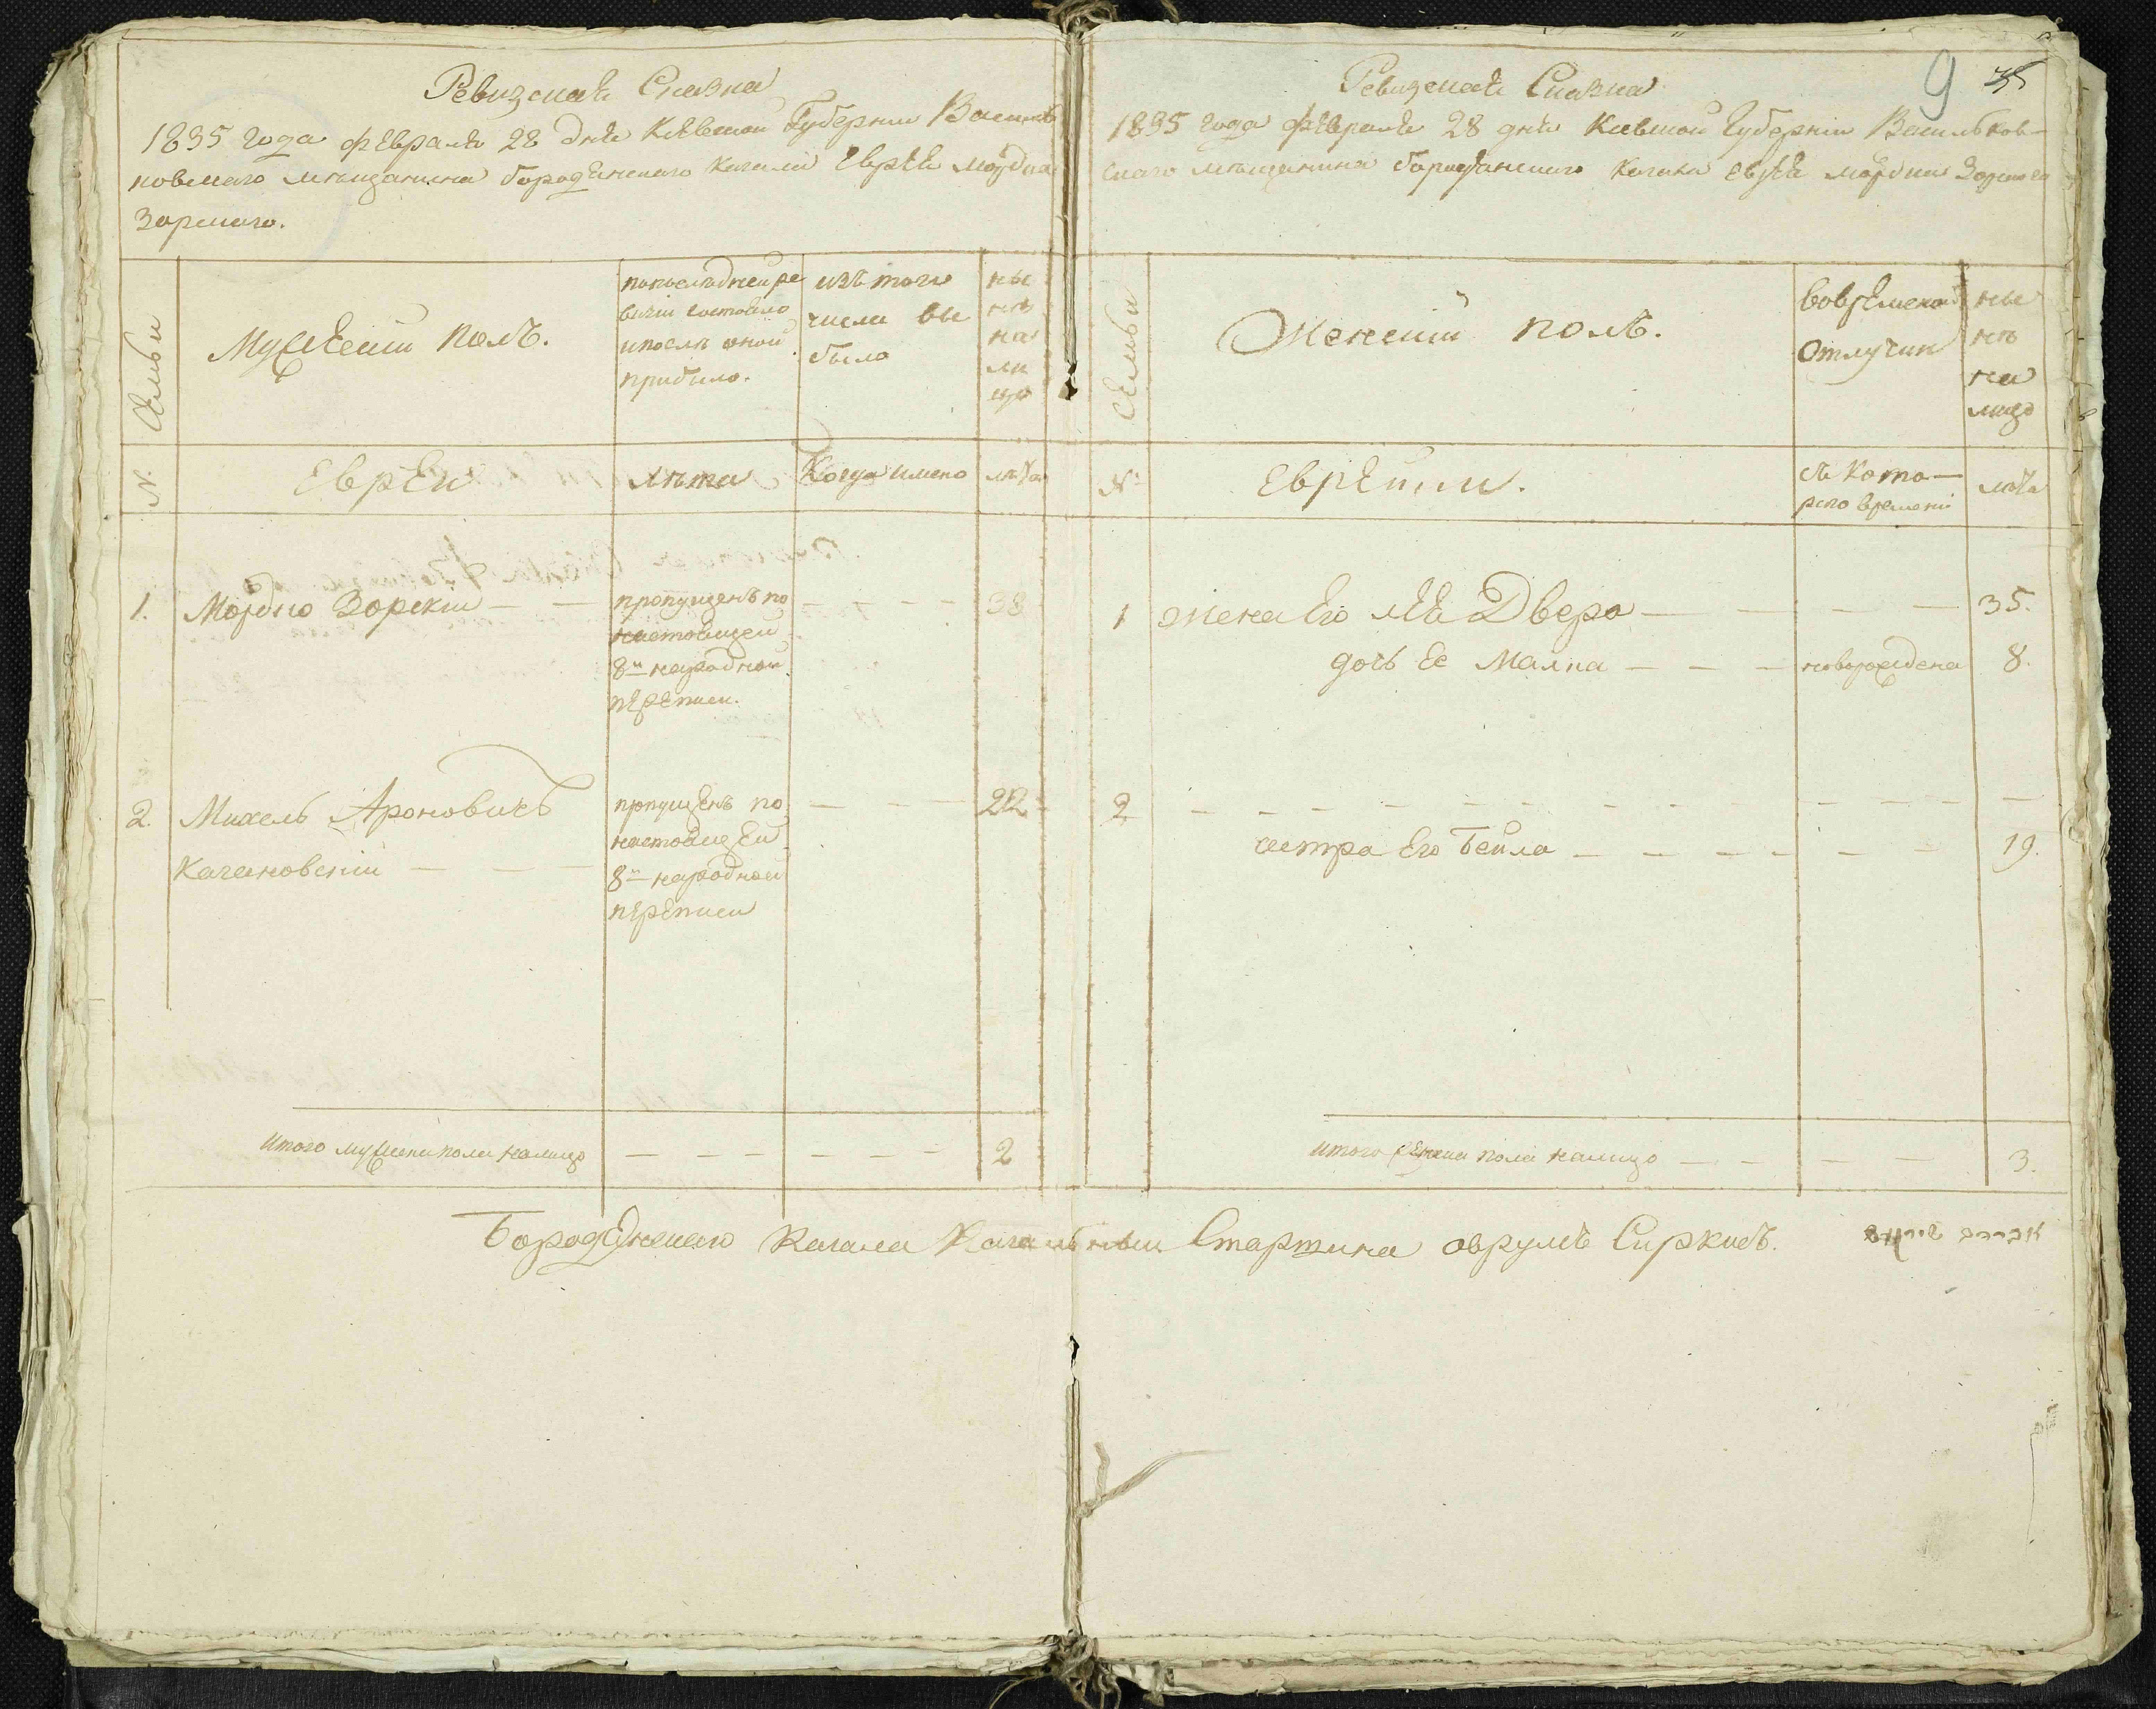 Ревизская Сказка
1835 года февраля 28 дня Киевской Губернии Василь
ковскаго мещанина бородянскаго кагала Еврея мордка
Зорскаго.
Семьи
Мужеский полъ.
попоследней ре
визии состояло
ипосле оной
прибыло.
изъ того
числа вы
было
ны
нѣ
на
ли
цо
N.
Евреи
лѣта
Когда имено
лѣта
1. Мордко Зорский — — пропущенъ по — — — 38
настоящей
8й народной
переписи.
2. Михель Ароновичъ пропущенъ по — — — 22
Качановский — — — настоящей
8й народной
переписи
Итого мужеска пола налицо — — — — — — — 2
9 35
Ревизская Сказка
1835 года февраля 28 дня Киевской Губерніи Васильков-
скаго мещанина бородянскаго кагала еврея мордки Зорскаго
Семьи
Женский полъ.
вовременой
отлучки
ны
нѣ
на
лицо
N:
Еврейки.
съ кото—
рого времени
лѣта
1 жена Его лея Двера — — — — 35.
дочь Ее Малка — — — новорождена 8.
2 — — — — — — — — — — — —
сестра Его Бейла — — — — — — 19.
итого женска пола налицо — — — — 3.
Бородянскаго Кагала Кагальный Старшина аврумъ Сиркисъ.